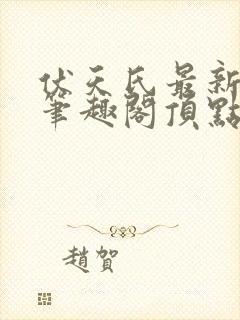 伏天氏最新
筆趣閣頂點
趙賀